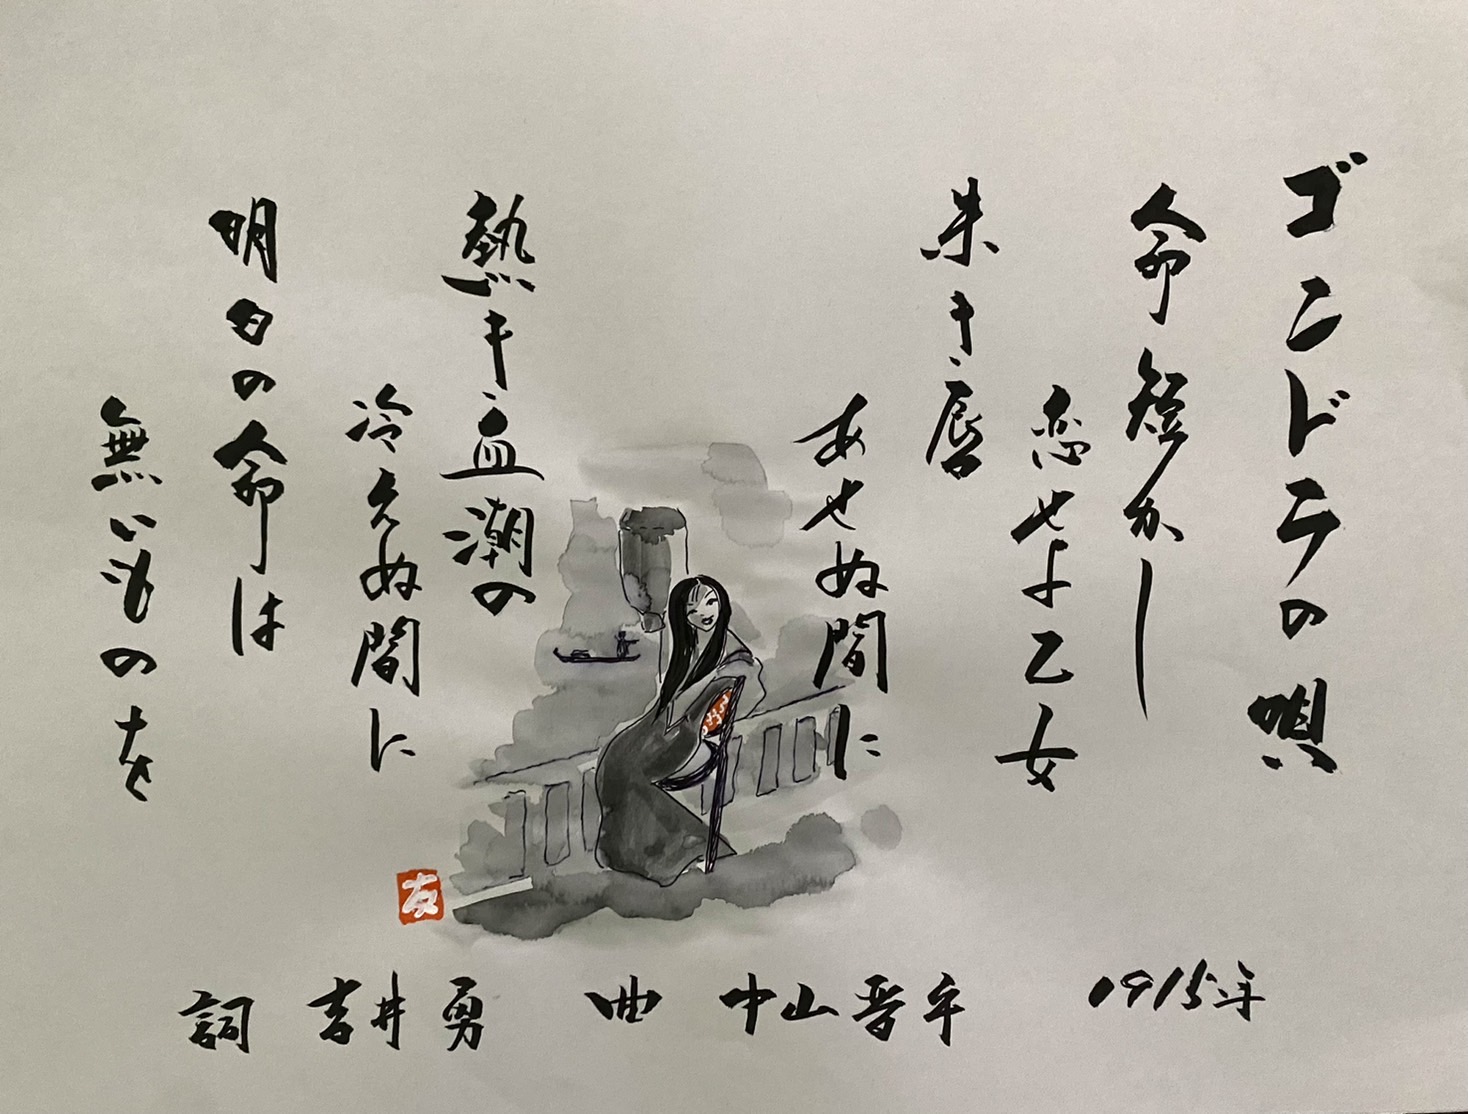 ゴンドラの唄
命短かし
恋せよ乙女
朱き唇
あせぬ間に
熱き血潮の
冷えぬ間に
明日の命は
無いものを
詞 吉井勇 曲 中山晋平 1915年
友